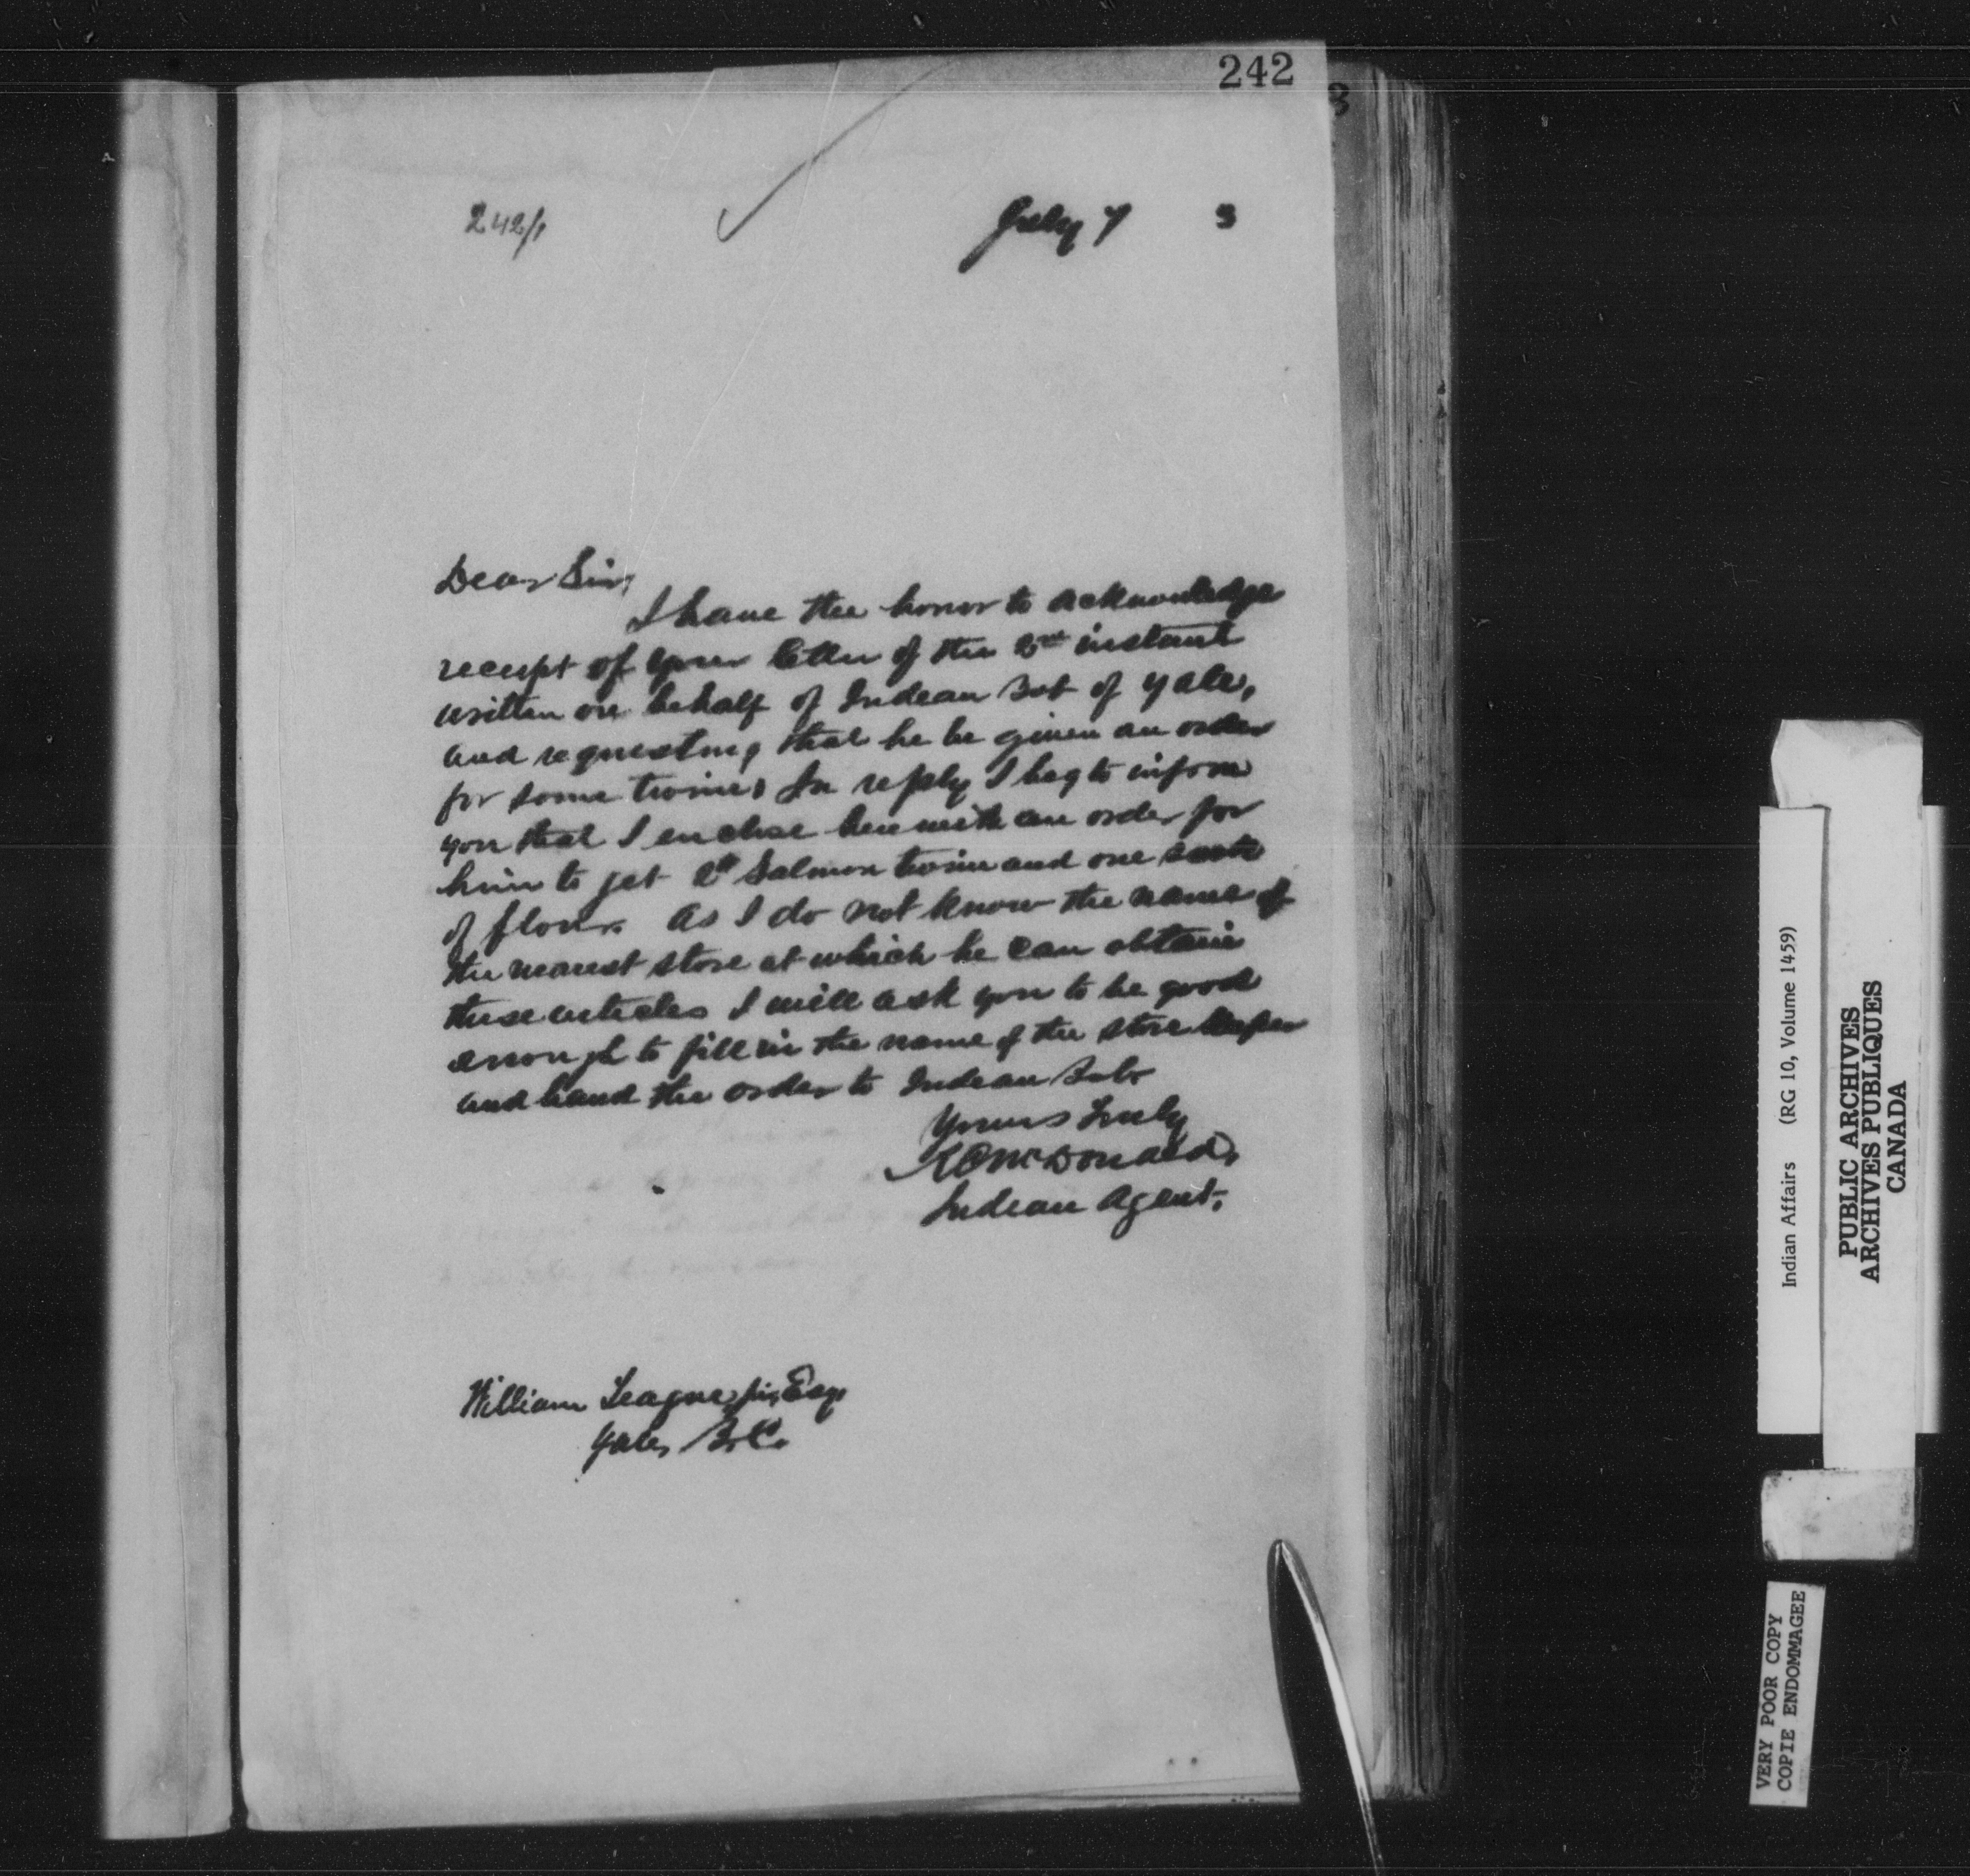 242
242/1
July 7 3
Dear Sir,
I have the honor to acknowledge
receipt of your letter of the 2nd instant
written on behalf of Indian Bob of Yale,
and requesting that he be given an order
for some twine. In reply I beg to inform
you that I enclose herewith an order for
him to get 2# Salmon twine and one sack
of flour. As I do not know the name of
the nearest store at which he can obtain
these articles I will ask you to be good
enough to fill in the name of the store keeper
and hand the order to Indian Bob.
Yours truly
McDonald,
Indian Agent.
William Teague, Jr, Esq
Yale, B.C.
Indian Affairs (RG 10, Volume 1459)
PUBLIC ARCHIVES
ARCHIVES PUBLIQUES
CANADA
VERY POOR COPY
COPIE ENDOMMAGEE